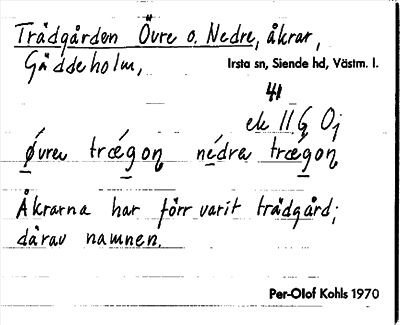 Trädgården Övre o. Nedre, åkrar,
Gäddeholm,
Irsta sn, Siende hd, Västm. l.
41
ek 11 G 0j
øvrer træ´gon nédra træ´gon
Åkrarna har förr varit trädgård;
därav namnen.
Per-Olof Kohls 1970